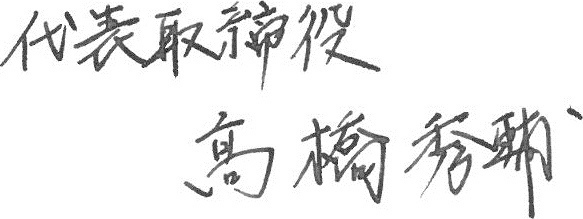 代表取締役
高橋秀輔